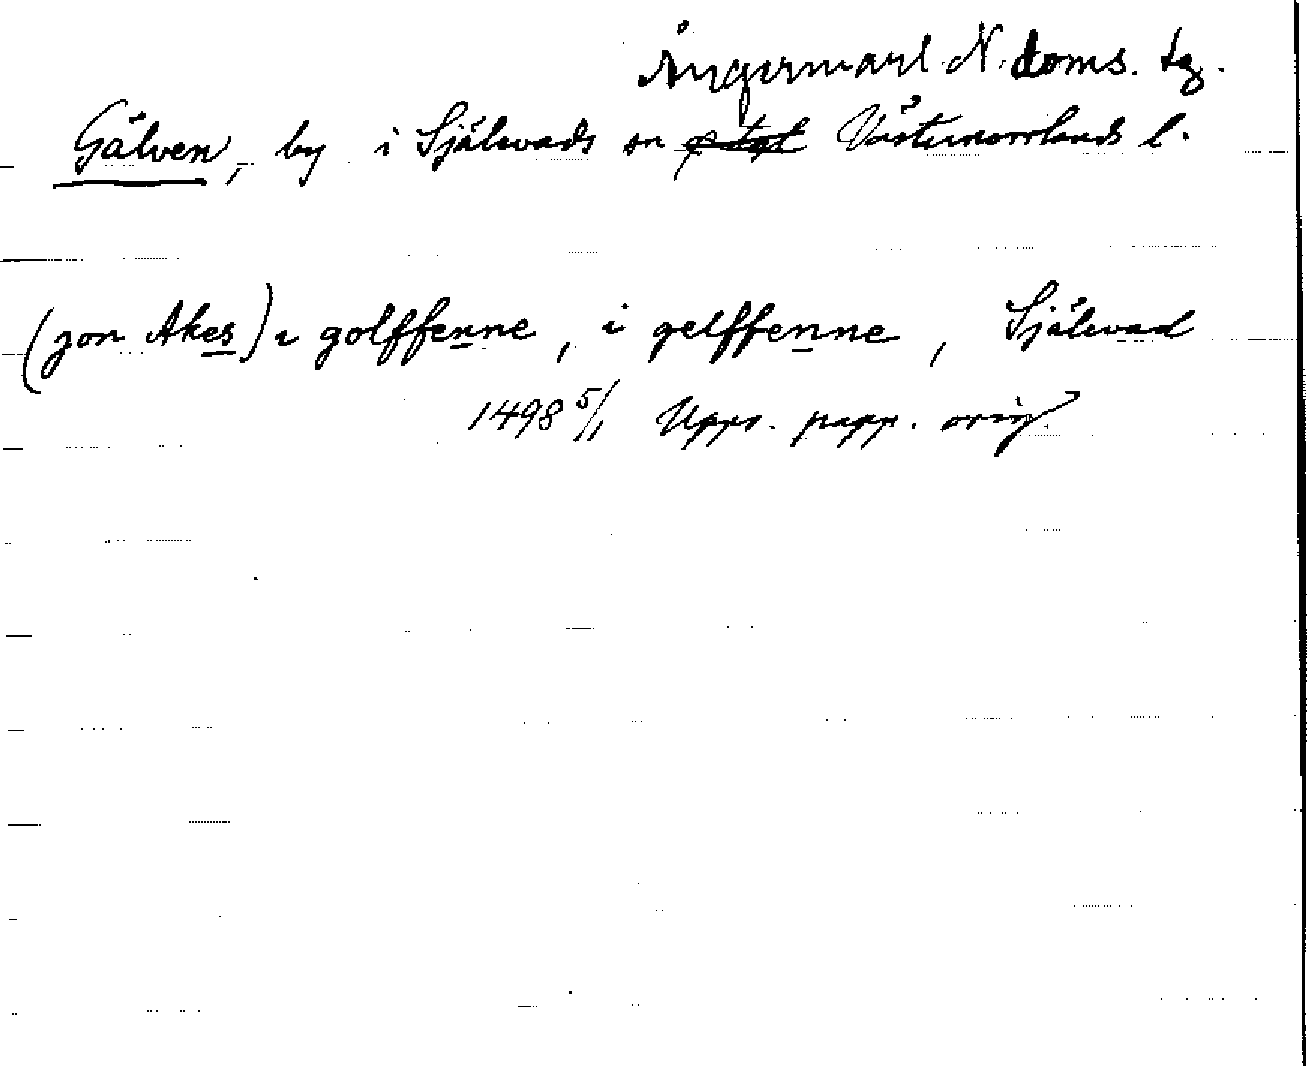 Ångermanl. N. doms. tg.
Gälven, by i Själevads sn Västernorrlands l.
(jon Akes) i golffenne, i gelffenne, Själevad
1498 5/1 Upps. papp. orig.